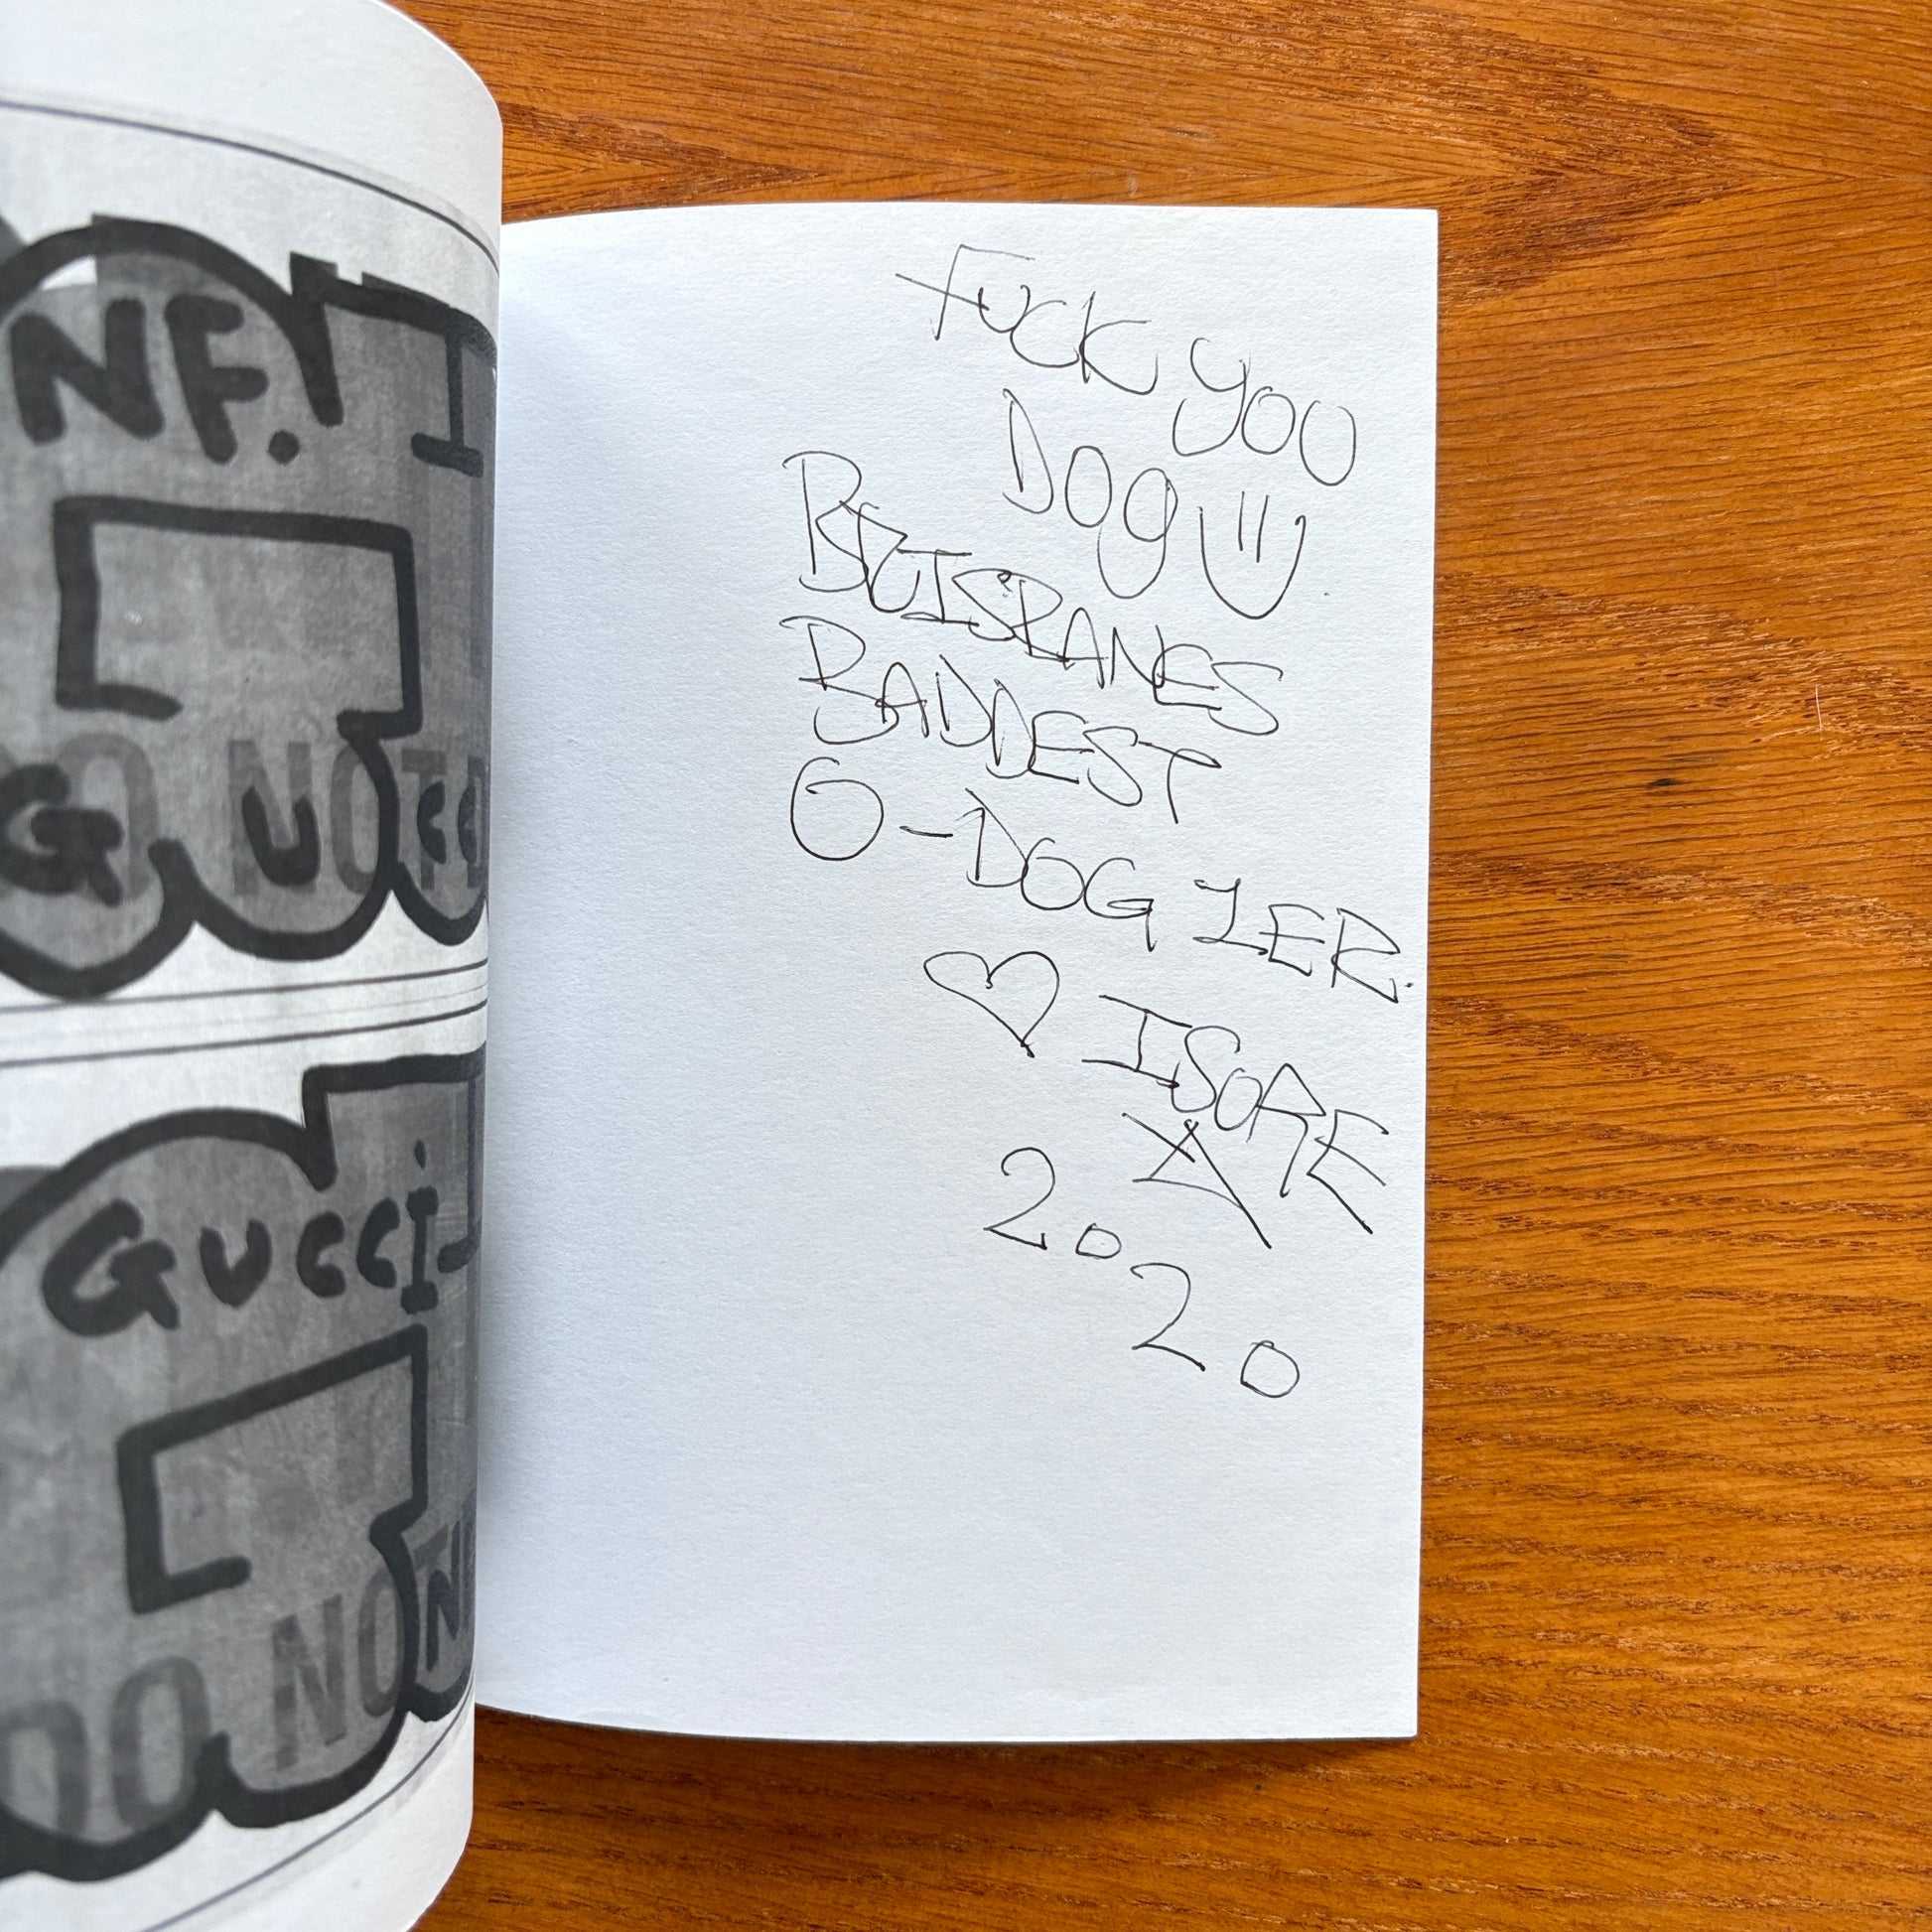 NF. I
DO NOT D
G U CC
GUCCI
DO NOT
FUCK YOU
DOG
BRISBANES
BADDEST
G-DOG 1ER.
ISORE
2020